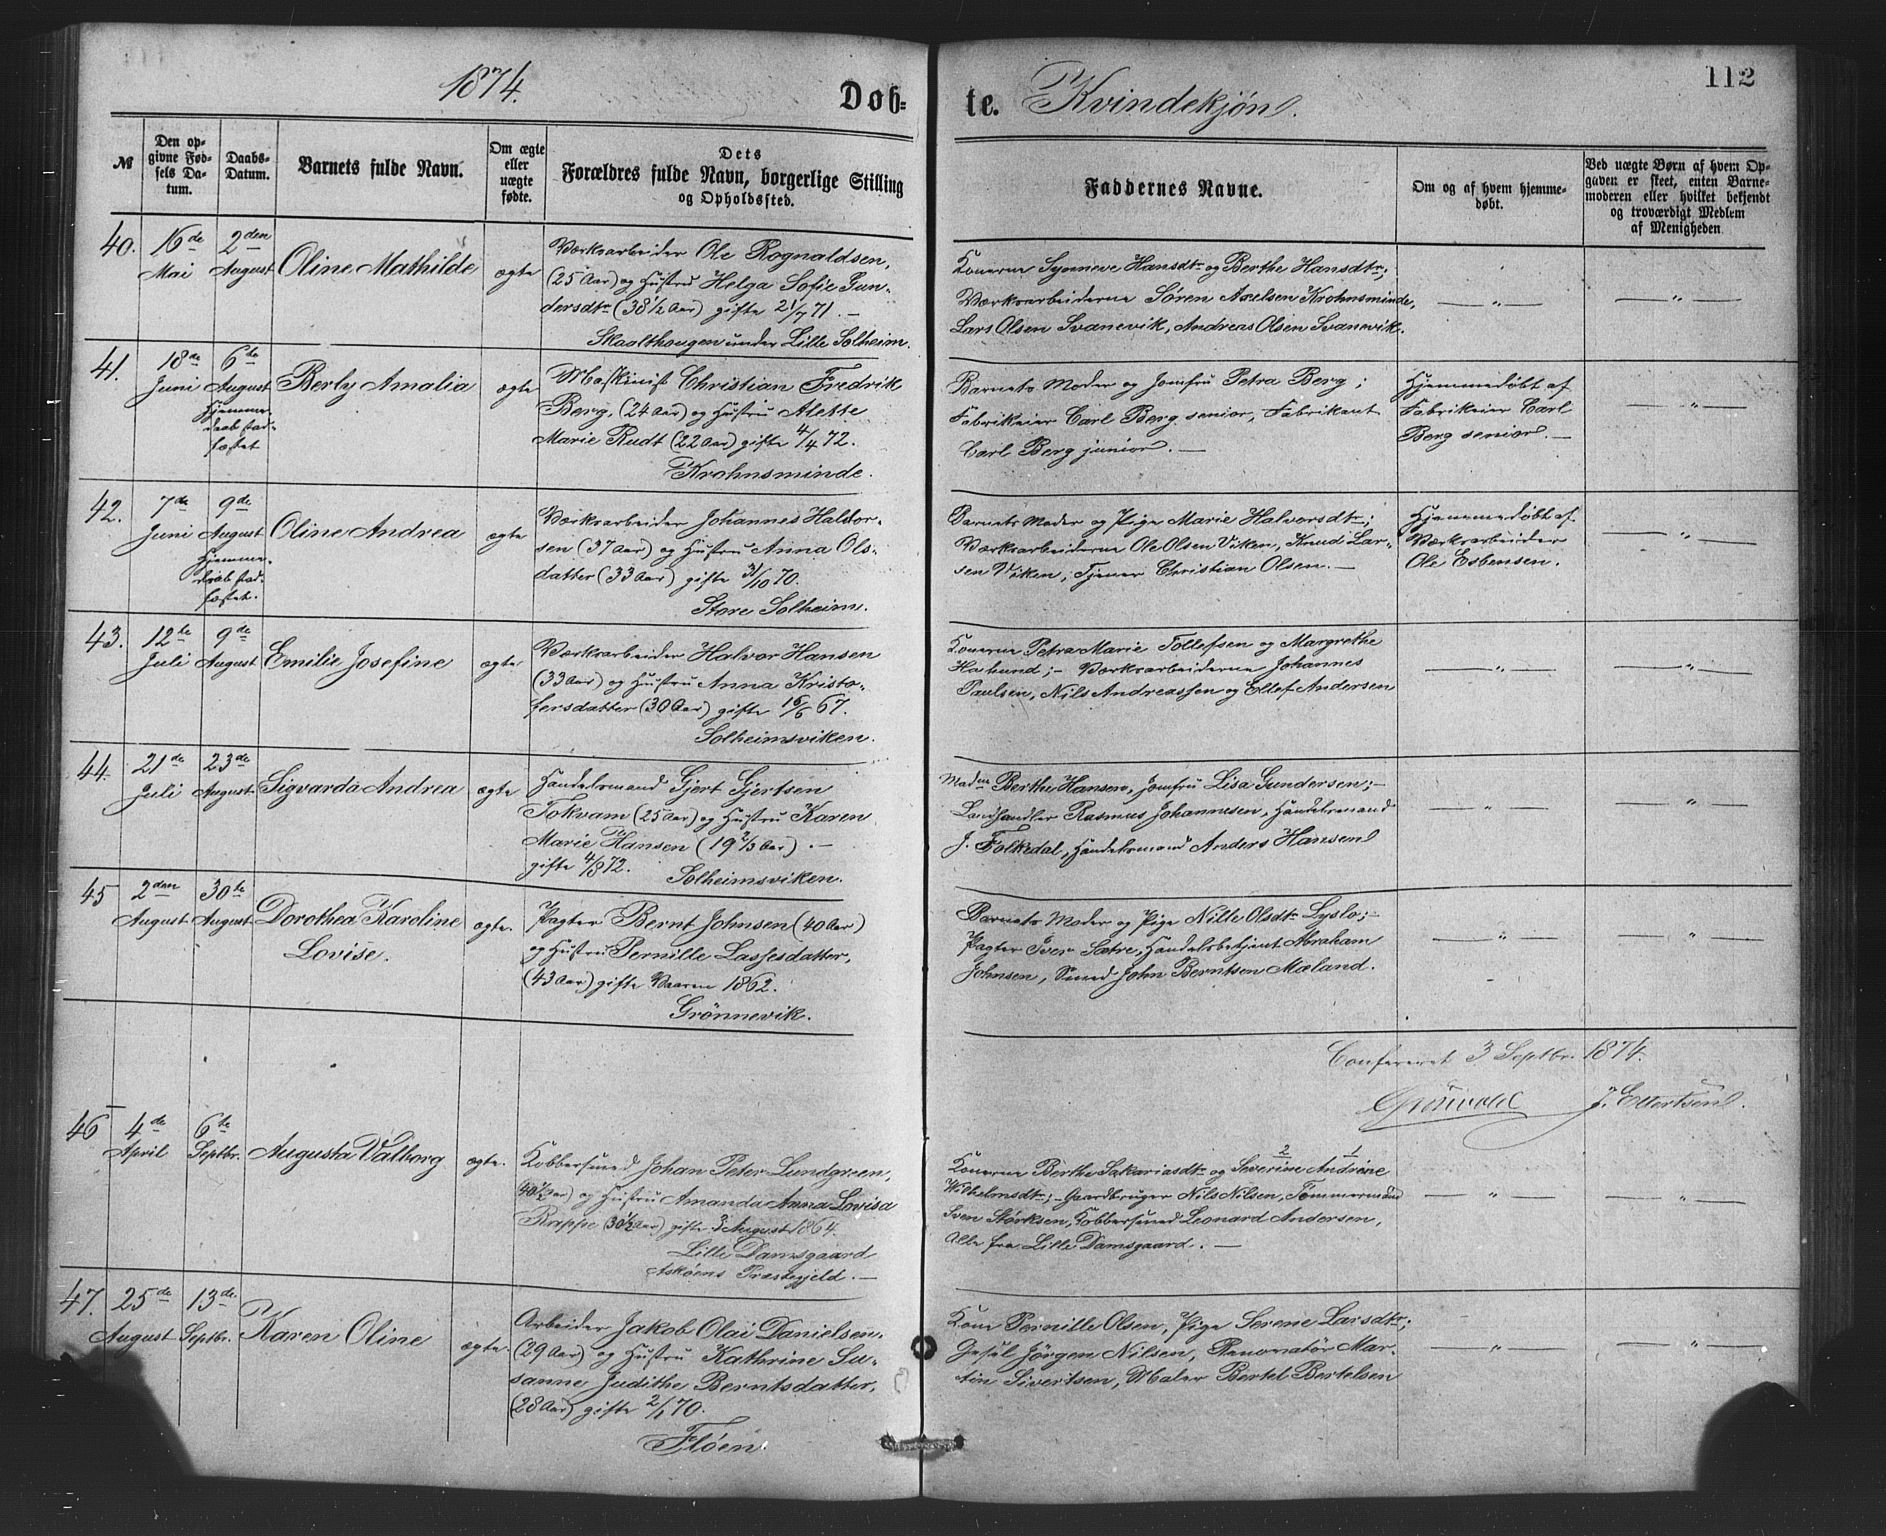 1874.
Døb=
te.
Kvindekjøn.
112
№
Den op-
givne Fød-
sels Da-
tum.
Daabs-
Datum.
Barnets fulde Navn.
Om ægte
eller
uægte
fødte.
Dets
Forældres fulde Navn, borgerlige Stilling
og Opholdssted.
Faddernes Navne.
Om og af hvem hjemme-
døbt.
Ved uægte Børn af hvem Op-
gaven er skeet, enten Barne-
moderen eller hvilket bekjendt
og troværdigt Medlem
af Menigheden.
40.
16de
Mai
2den
August
Oline Mathilde
ægte
Værksarbeider Ole Rognaldsen,
(25 Aar) og Hustru Helga Sofie Gun-
dersdtr (38 1/2 Aar) gifte 21/7 71. —
Skaolthougen under Lille Solheim.
Konerne Synneve Hansdtr og Berthe Hansdtr;
Værksarbeiderne Søren Axelsen Krohnsminde,
Lars Olsen Svanevik, Andreas Olsen Svanevik.
— " —
— " —
41.
18de
Juni
6te
August
Hjemme-
daab stad-
fæstet
Berly Amalia
ægte
Maskinist Christian Fredrik
Berg, (24 Aar) og Hustru Alette
Marie Rudt (22 Aar) gifte 4/4 72.
Krohnsminde.
Barnets Moder og Jomfru Petra Berg;
Fabrikeier Carl Berg senior, Fabrikant
Carl Berg junior. —
Hjemmedøbt af
Fabrikeier Carl
Berg senior. —
— " —
42.
7de
Juni
9de
August
Hjemme-
daab stad-
fæstet.
Oline Andrea
ægte
Værksarbeider Johannes Haldor-
sen (37 Aar) og Hustru Anna Ols-
datter (33 Aar) gifte 31/10 70.
Store Solheim.
Barnets Moder og Pige Marie Halvorsdtr;
Værksarbeiderne Ole Olsen Viken, Knud Lar-
sen Viken, Tjener Christian Olsen. —
Hjemmedøbt af
Værksarbeider
Ole Esbensen.
— " —
43.
12te
Juli
9de
August
Emilie Josefine
ægte
Værksarbeider Halvor Hansen
(33 Aar) og Hustru Anna Kristo-
fersdatter (30 Aar) gifte 16/6 67.
Solheimsviken.
Konerne Petra Marie Tollefsen og Margrethe
Haukund; — Værksarbeiderne Johannes
Paulsen, Nils Andreassen og Ellef Andersen
— " —
— " —
44.
21de
Juli
23de
August
Sigvarda Andrea
ægte
Handelsmand Gjert Gjertsen
Tokvam (25 Aar) og Hustru Karen
Marie Hansen (19 2/3 Aar). —
gifte 4/8 72. Solheimsviken.
Madm Berthe Hansen, Jomfru Lisa Gundersen; —
Landhandler Rasmus Johannesen, Handelsmand
J. Folkedal, Handelsmand Anders Hansen
— " —
— " —
45
2den
August
30te
August
Dorothea Karoline
Lovise.
ægte.
Pagter Bernt Johnsen (40 Aar)
og Hustru Pernille Lassesdatter,
(43 Aar) gifte Vaaren 1862.
Grönnevik.
Barnets Moder og Pige Nille Olsdtr Lyslo; —
Pagter Iver Sætre, Handelsbetjent Abraham
Johnsen, Smed John Berntsen Mæland.
— " —
— " —
Confereret 3 Septbr. 1874.
J. Ellertsen.
46
4de
April
6te
Septbr.
Augusta Valborg
ægte.
Kobbersmed Johan Peter Lundgreen,
(40 1/2 Aar) og Hustru Amanda Anna Lovisa
Rappe (30 1/2 Aar) gifte 3 August 1864.
Lille Damsgaard
Askøens Præstegjeld. —
2 1
Konerne Berthe Sakariasdtr og Severine Andrine
Wilhelmsdtr; — Gaardbruger Nils Nilsen, Tømmermand
Sven Størksen, Kobbersmed Leonard Andersen,
Alle fra Lille Damsgaard. —
— " —
— " —
47.
25de
August
13de
Septbr.
Karen Oline
ægte.
Arbeider Jakob Olai Danielsen
(29 Aar) og Hustru Kathrine Su-
sanne Judithe Berntsdatter,
(28 Aar) gifte 2/1 70.
Flöen.
Kone Pernille Olsen, Pige Serene Larsdtr;
Jørgen Nilsen, Mar-
tin Sivertsen, Maler Bertel Bertelsen
— " —
— " —